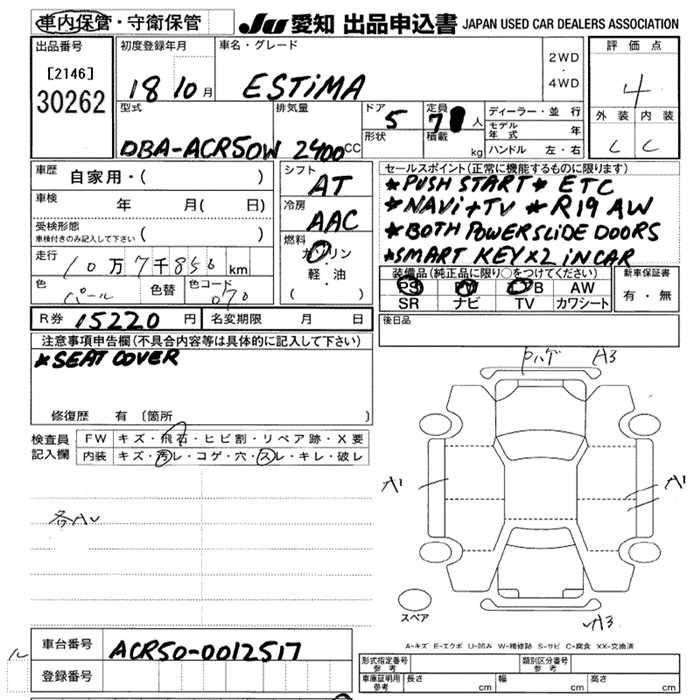 車内保管・守衛保管
JU 愛知 出品申込書 JAPAN USED CAR DEALERS ASSOCIATION
出品番号
[2146]
30262
初度登録年月
18 10 月
車名・グレード
ESTiMA
2WD
・
4WD
評価点
4
外装 内装
C C
型式
DBA-ACR50W
排気量
2400 CC
ドア 5
形状
定員 7 人
積載 kg
ディーラー・並行
モデル年式 年
ハンドル 左・右
車歴
自家用・( )
車検
年 月( 日)
受検形態
車検付きのみ記入して下さい ( )
走行
10万7千856 km
色 パール
色替
色コード 070
シフト
AT
冷房
AAC
燃料
ガソリン
・
軽・油
( )
セールスポイント(正常に機能するものに限ります)
*PUSH START * ETC
*NAVi+TV * R19 AW
*BOTH POWERSLiDE DOORS
*SMART KEY×2 iN CAR
装備品(純正品に限り○をつけてください)
PS PW AB AW
SR ナビ TV カワシート
新車保証書
有・無
R券 15220 円
名変期限 月 日
後日品
注意事項申告欄(不具合内容等は具体的に記入して下さい)
*SEAT COVER
修復歴 有〔箇所 〕
検査員記入欄
FW キズ・飛石・ヒビ割・リペア跡・X要
内装 キズ・汚レ・コゲ・穴・スレ・キレ・破レ
各AU
Pハゲ A3
A1
A1
A3
スペア
A-キズ E-エクボ U-凹み W-補修跡 S-サビ C-腐食 XX-交換済
車台番号 ACR50-0012517
登録番号
形式指定番号
参考
類別区分番号
参考
車庫証明用
参考
長さ cm 幅 cm 高さ cm